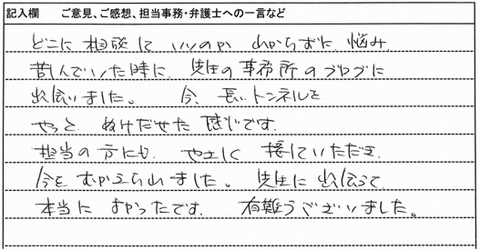 記入欄 ご意見、ご感想、担当事務・弁護士への一言など
どこに 相談して いいのか わからずに 悩み
苦しんでいた時に、先生の事務所のブログに
出会いました。 今、長いトンネルを
やっと ぬけだせた 感じです。
担当の方にも、やさしく 接していただき、
今を むかえられました。 先生に 出会えて
本当に よかったです。 有難うございました。